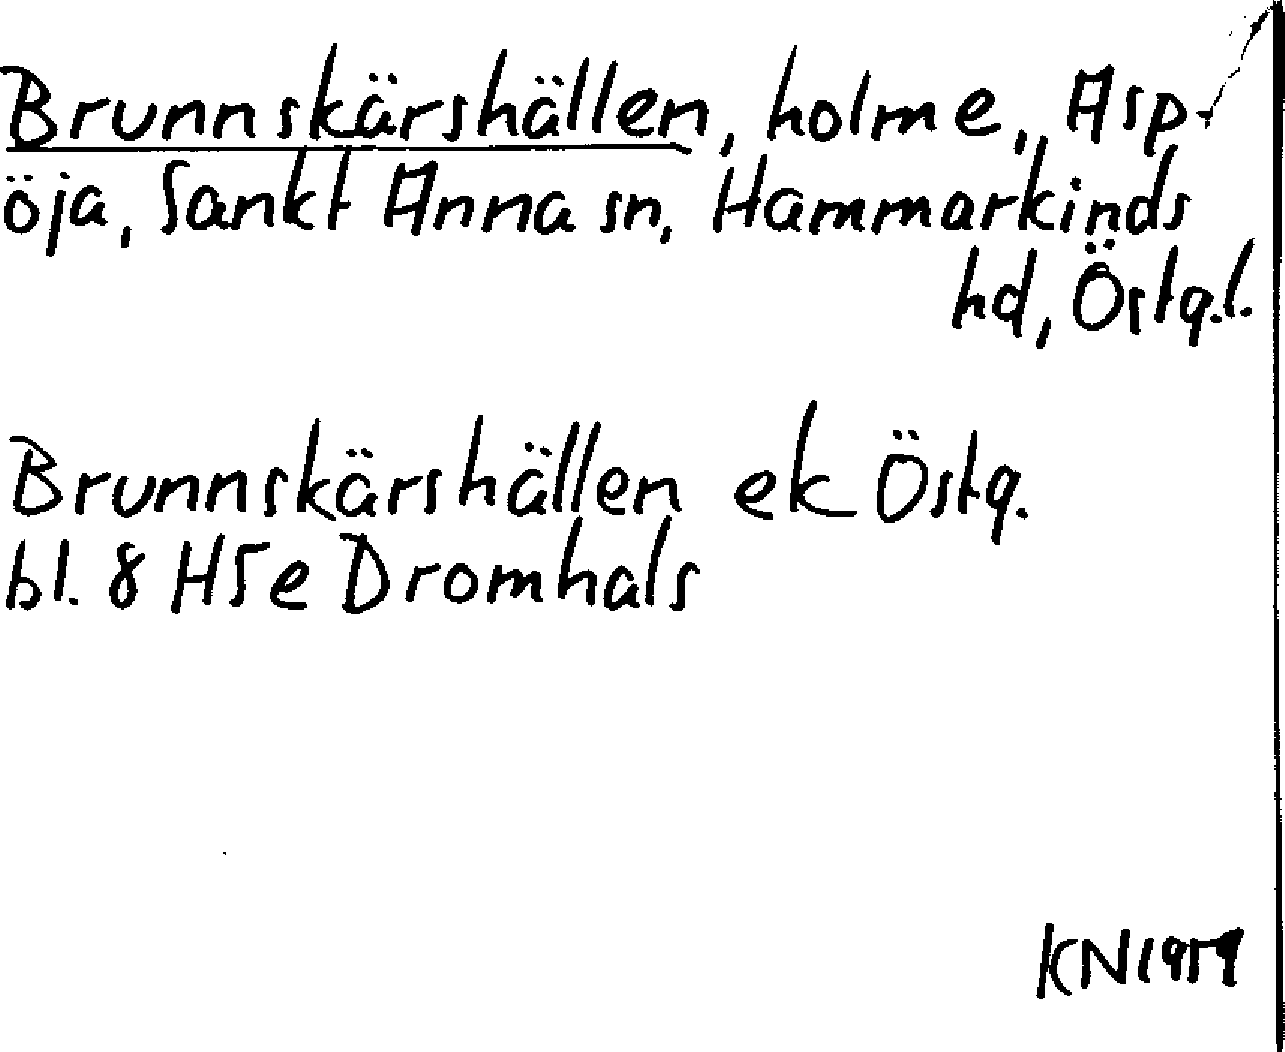 Brunnskärshällen, holme, Asp-
öja, Sankt Anna sn, Hammarkinds
hd, Östg.l.
Brunnskärshällen ek Östg.
bl. 8 H5e Dromhals
KN 1959